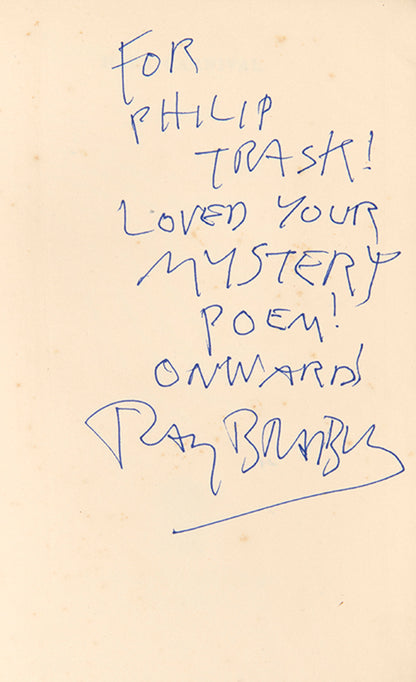 FOR
PHILIP
TRASK!
LOVED YOUR
MYSTERY
POEM!
ONWARD!
RAY BRADBURY